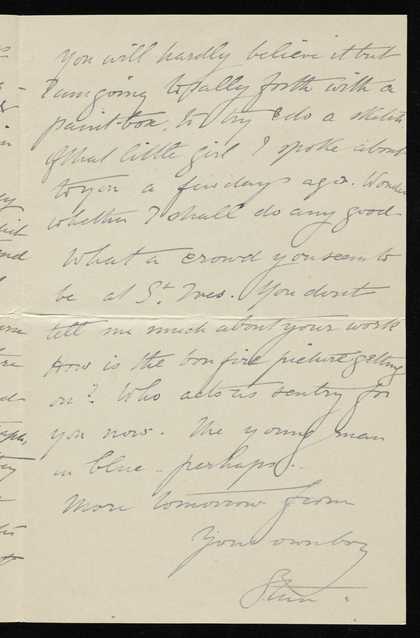 You will hardly believe it but
I am going to sally forth with a
paint-box, to try & do a sketch
of that little girl I spoke about
to you a few days ago. Wonder
whether I shall do any good.
What a crowd you seem to
be at St. Ives. You don't
tell me much about your work
How is the bonfire picture getting
on? Who acts as sentry for
you now. The young man
in blue - perhaps..
More tomorrow from
Your own boy